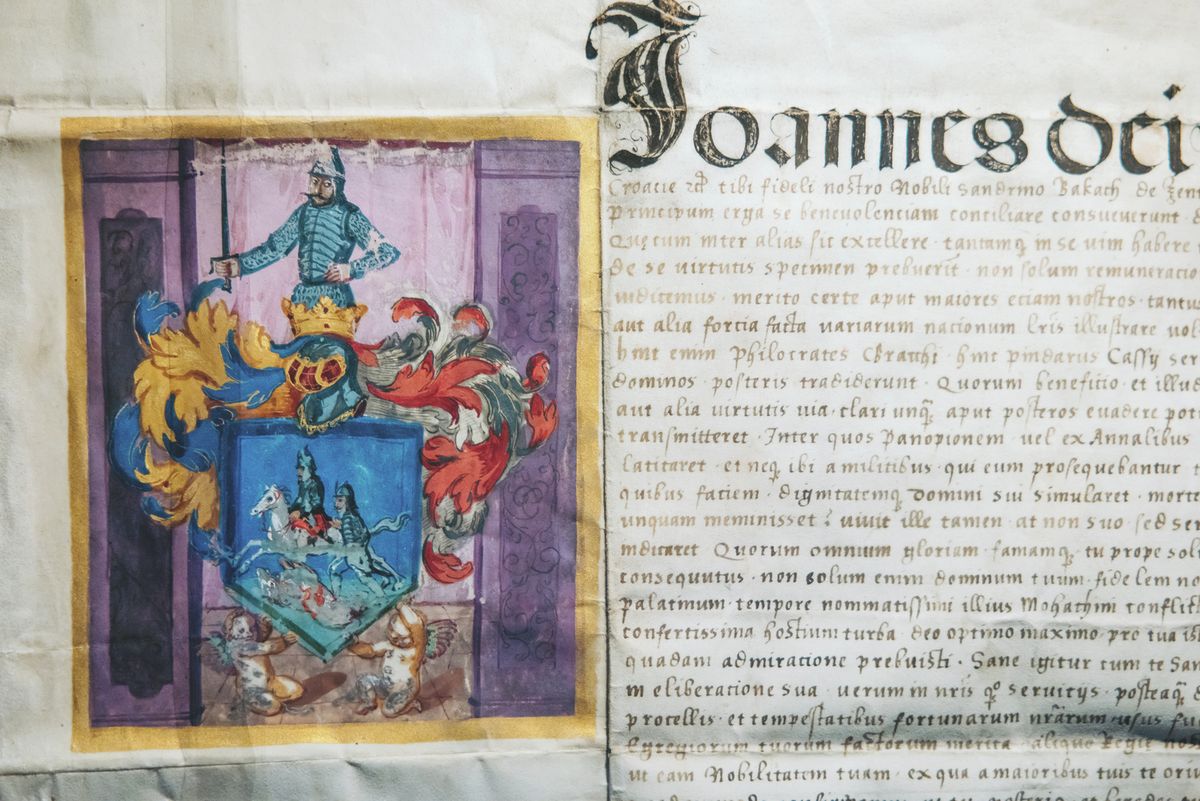 Joannes dei
Croacie tibi fideli nostro Nobili Sandrino Bakach de
principum erga se benevolenciam conciliare consueverunt
Quę cum inter alias sic excellere · tantamq in se vim habere
de se virtutis specimen prebuerit · non solum remuneracio
iudicemus · merito certe aput maiores eciam nostros · tantu
aut alia forcia facta variarum nacionum lris illustrare vol
hinc enim Philocrates · hinc pindarus Cassy ser
dominos · posteris tradiderunt · Quorum beneficio · et illud
aut alia virtutis via · clari unq aput posteros evadere pot
transmitteret · Inter quos Panopionem · vel ex Annalibus
latitaret · et neq ibi a militibus · qui eum prosequebantur t
quibus faciem · dignitatemq Domini sui simularet · morte
unquam meminisset vivit ille tamen · at non suo · sed ser
indicaret Quorum omnium gloriam · famamq · tu prope solus
consequutus · non solum enim dominum tuum · fidelem no
palatinum · tempore nominatissimi illius Mohachini conflict
confertissima hostium turba · deo optimo maximo · pro tua
quadam admiracione prebuisti · Sane igitur cum te San
in eliberatione sua · verum in nris qo servitys · posteaq d
procellis · et tempestatibus fortunarum nrarum usus fu
Egregiorum tuorum factorum merita · aliquo Regie
ut eam Nobilitatem tuam · ex qua a maioribus tuis te